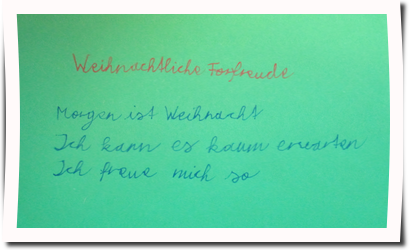 Weihnachtliche Forfreude
Morgen ist Weihnacht
Ich kann es kaum erwarten
Ich freue mich so